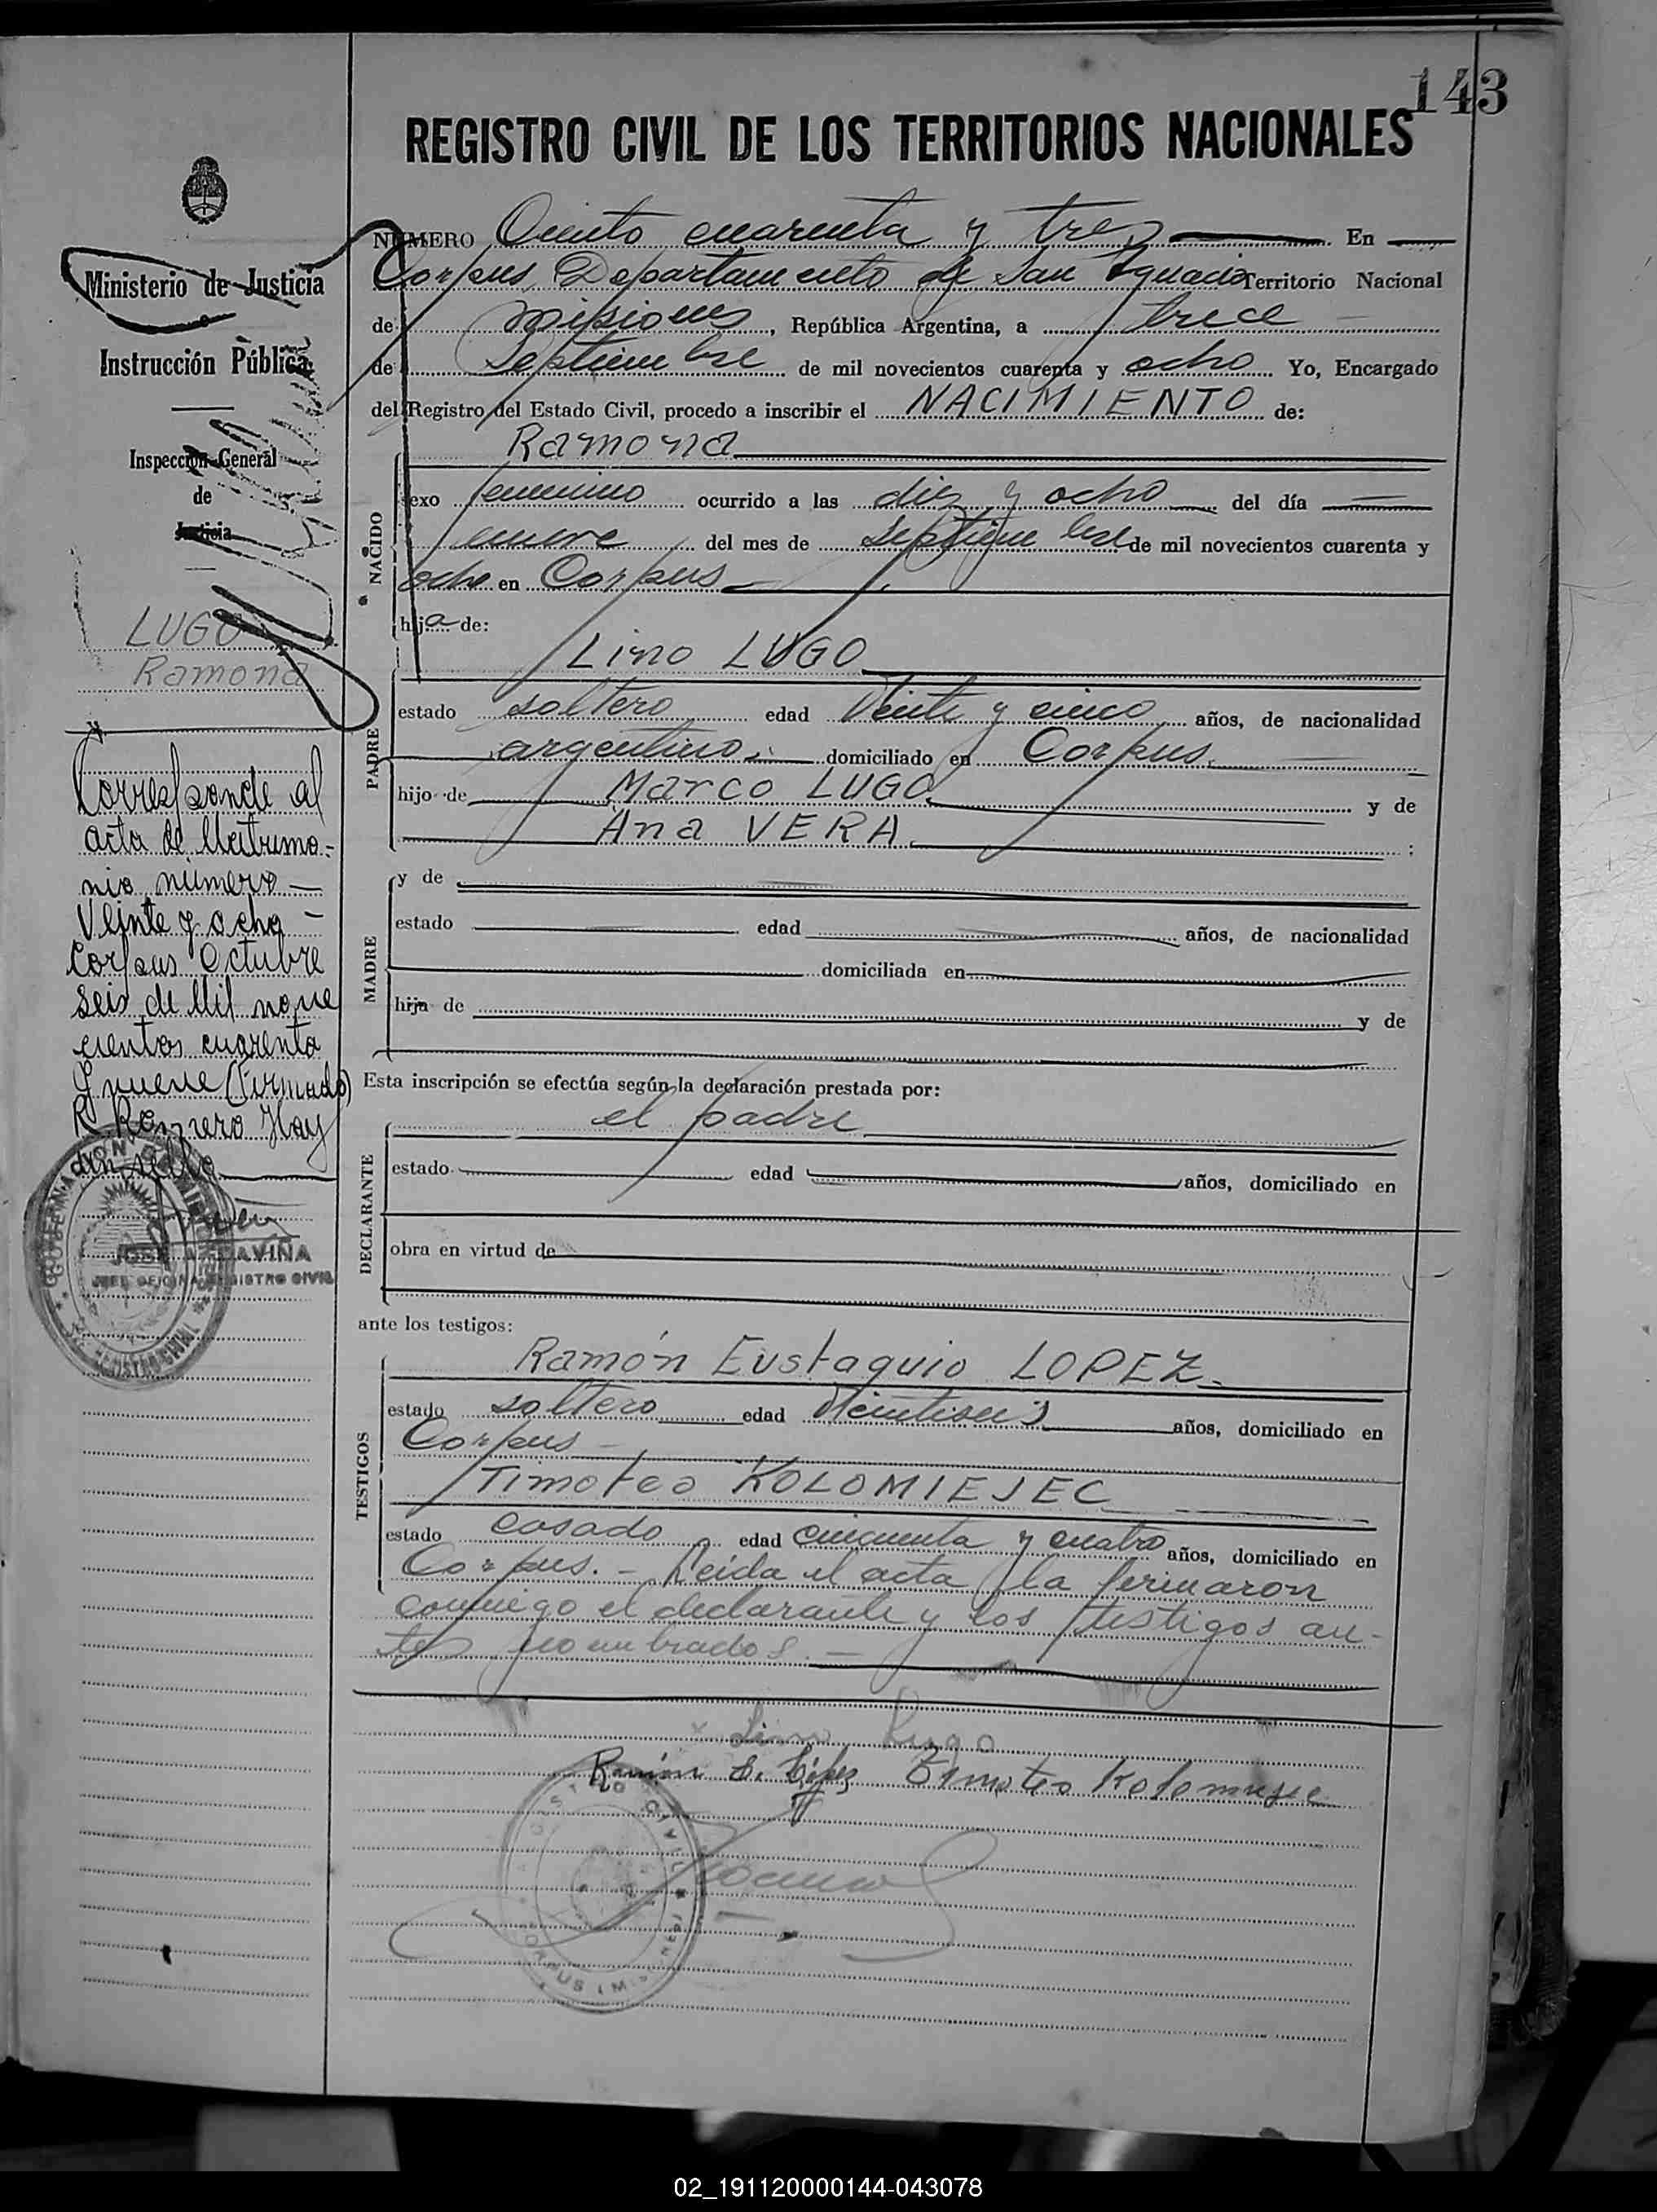 143
REGISTRO CIVIL DE LOS TERRITORIOS NACIONALES
Ministerio de Justicia
e
Instrucción Pública
Inspección General
de
Justicia
LUGO
Ramona
Corresponde al
acta de Matrimo-
nio número
Veinte y ocho -
Corpus Octubre
Seis de Mil nove
cientos cuarenta
y nueve (Firmado)
R. Romero Hay
un sello
JEFE OFICINA REGISTRO CIVIL
NUMERO Ciento cuarenta y tres En
Corpus, Departamento de San Ignacio Territorio Nacional
de Misiones, República Argentina, a trece
de Septiembre de mil novecientos cuarenta y ocho Yo, Encargado
del Registro del Estado Civil, procedo a inscribir el NACIMIENTO de:
Ramona
NACIDO
sexo femenino ocurrido a las diez y ocho del día
nueve del mes de septiembre de mil novecientos cuarenta y
ocho en Corpus
hija de:
Lino LUGO
PADRE
estado soltero edad Veinte y cinco años, de nacionalidad
argentino domiciliado en Corpus.
hijo de Marco LUGO y de
Ana VERA ;
MADRE
y de
estado edad años, de nacionalidad
domiciliada en
hija de y de
Esta inscripción se efectúa según la declaración prestada por:
el padre
DECLARANTE
estado edad años, domiciliado en
obra en virtud de
ante los testigos:
TESTIGOS
Ramón Eustaquio LOPEZ.
estado soltero edad Veintiseis años, domiciliado en
Corpus
Timoteo KOLOMIEJEC
estado casado edad cincuenta y cuatro años, domiciliado en
Corpus. - Leida el acta la firmaron
conmigo el declarante y los testigos an-
tes nombrados. -
x Lino Lugo
Ramón E. López Timoteo Kolomiejec
02_191120000144-043078